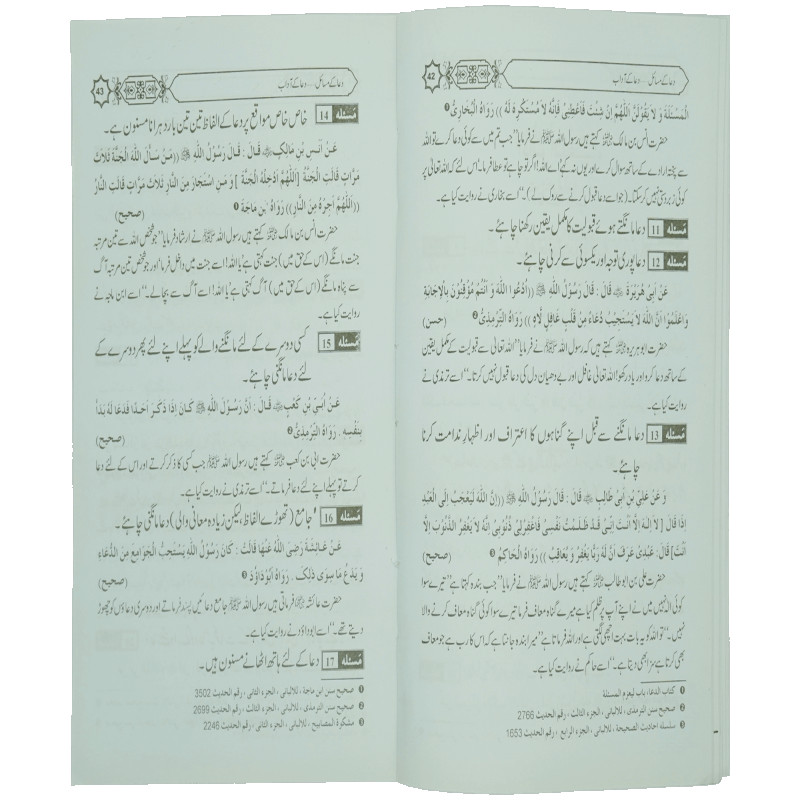 42
دعا کے مسائل ... دعا کے آداب
الْمَسْئَلَةَ وَ لاَ يَقُوْلَنَّ اَللّٰهُمَّ اِنْ شِئْتَ فَاَعْطِنِيْ فَاِنَّهُ لاَ مُسْتَكْرِهَ لَهُ )) رَوَاهُ الْبُخَارِيُّ ❶
حضرت انس بن مالک رضی اللہ عنہ کہتے ہیں رسول اللہ ﷺ نے فرمایا ’’جب تم میں سے کوئی دعا کرے تو اللہ
سے پختہ ارادے کے ساتھ سوال کرے اور یوں نہ کہے اے اللہ! اگر تو چاہے تو عطا فرما۔ اس لئے کہ اللہ تعالیٰ پر
کوئی زبردستی نہیں کر سکتا۔ (جو اسے دعا قبول کرنے سے روک لے)۔‘‘ اسے بخاری نے روایت کیا ہے۔
مسئلہ 11 دعا مانگتے ہوئے قبولیت کا مکمل یقین رکھنا چاہئے۔
مسئلہ 12 دعا پوری توجہ اور یکسوئی سے کرنی چاہئے۔
عَنْ اَبِيْ هُرَيْرَةَ ﷺ قَالَ : قَالَ رَسُوْلُ اللّٰهِ ﷺ (( اُدْعُوا اللّٰهَ وَ اَنْتُمْ مُوْقِنُوْنَ بِالْاِجَابَةِ
وَاعْلَمُوْا اَنَّ اللّٰهَ لاَ يَسْتَجِيْبُ دُعَاءً مِنْ قَلْبٍ غَافِلٍ لاَهٍ )) رَوَاهُ التِّرْمِذِيُّ ❷ (حسن)
حضرت ابو ہریرہ رضی اللہ عنہ کہتے ہیں کہ رسول اللہ ﷺ نے فرمایا ’’اللہ تعالیٰ سے قبولیت کے مکمل یقین
کے ساتھ دعا کرو اور یاد رکھو! اللہ تعالیٰ غافل اور بے دھیان دل کی دعا قبول نہیں کرتا۔‘‘ اسے ترمذی نے
روایت کیا ہے۔
مسئلہ 13 دعا مانگنے سے قبل اپنے گناہوں کا اعتراف اور اظہار ندامت کرنا
چاہئے۔
وَ عَنْ عَلِيِّ بْنِ اَبِيْ طَالِبٍ قَالَ : قَالَ رَسُوْلُ اللّٰهِ ﷺ ((اِنَّ اللّٰهَ لَيَعْجَبُ اِلَى الْعَبْدِ
اِذَا قَالَ [لاَ اِلٰهَ اِلاَّ اَنْتَ اِنِّيْ قَدْ ظَلَمْتُ نَفْسِيْ فَاغْفِرْلِيْ ذُنُوْبِيْ اِنَّهُ لاَ يَغْفِرُ الذُّنُوْبَ اِلاَّ
اَنْتَ] قَالَ : عَبْدِيْ عَرَفَ اَنَّ لَهُ رَبًّا يَغْفِرُ وَ يُعَاقِبُ )) رَوَاهُ الْحَاكِمُ ❸ (صحيح)
حضرت علی بن ابو طالب رضی اللہ عنہ کہتے ہیں رسول اللہ ﷺ نے فرمایا ’’جب بندہ کہتا ہے’’ تیرے سوا
کوئی الٰہ نہیں میں نے اپنے آپ پر ظلم کیا ہے میرے گناہ معاف فرما تیرے سوا کوئی گناہ معاف کرنے والا
نہیں۔‘‘ تو اللہ کو یہ بات بہت اچھی لگتی ہے اور اللہ فرماتا ہے’’ میرا بندہ جانتا ہے کہ اس کا رب ہے جو معاف
بھی کرتا ہے سزا بھی دیتا ہے۔‘‘ اسے حاکم نے روایت کیا ہے۔
❶ كتاب الدعا، باب ليعزم المسئلة
❷ صحيح سنن الترمذى ، للالبانى ، الجزء الثالث ، رقم الحديث 2766
❸ سلسلة احاديث الصحيحة ، للالبانى ، الجزء الرابع ، رقم الحديث 1653
43
دعا کے مسائل ... دعا کے آداب
مسئلہ 14 خاص خاص مواقع پر دعا کے الفاظ تین تین بار دہرانا مسنون ہے۔
عَنْ اَنَسِ بْنِ مَالِكٍ ﷺ قَالَ : قَالَ رَسُوْلُ اللّٰهِ ﷺ ((مَنْ سَأَلَ اللّٰهَ الْجَنَّةَ ثَلاَثَ
مَرَّاتٍ قَالَتِ الْجَنَّةُ [اَللّٰهُمَّ اَدْخِلْهُ الْجَنَّةَ ] وَ مَنِ اسْتَجَارَ مِنَ النَّارِ ثَلاَثَ مَرَّاتٍ قَالَتِ النَّارُ
((اَللّٰهُمَّ اَجِرْهُ مِنَ النَّارِ)) رَوَاهُ ابْنُ مَاجَةَ ❶ (صحيح)
حضرت انس بن مالک رضی اللہ عنہ کہتے ہیں رسول اللہ ﷺ نے ارشاد فرمایا’’ جو شخص اللہ سے تین مرتبہ
جنت مانگے (اس کے حق میں) جنت کہتی ہے یا اللہ! اسے جنت میں داخل فرما اور جو جو تین مرتبہ آگ
سے پناہ مانگے (اس کے حق میں) آگ کہتی ہے یا اللہ! اسے آگ سے بچا لے۔‘‘ اسے ابن ماجہ نے
روایت کیا ہے۔
مسئلہ 15 کسی دوسرے کے لئے مانگنے والے کو پہلے اپنے لئے پھر دوسرے کے
لئے دعا مانگنی چاہئے۔
عَنْ اُبَيِّ بْنِ كَعْبٍ ﷺ قَالَ : اَنَّ رَسُوْلَ اللّٰهِ ﷺ كَانَ اِذَا ذَكَرَ اَحَدًا فَدَعَا لَهُ بَدَأَ
بِنَفْسِهِ . رَوَاهُ التِّرْمِذِيُّ ❷ (صحيح)
حضرت ابی بن کعب رضی اللہ عنہ کہتے ہیں رسول اللہ ﷺ جب کسی کا ذکر کرتے اور اس کے لئے دعا
کرتے تو پہلے اپنے لئے دعا فرماتے۔‘‘ اسے ترمذی نے روایت کیا ہے۔
مسئلہ 16 جامع (تھوڑے الفاظ، لیکن زیادہ معانی والی) دعا مانگنی چاہئے۔
عَنْ عَائِشَةَ رَضِيَ اللّٰهُ عَنْهَا قَالَتْ : كَانَ رَسُوْلُ اللّٰهِ ﷺ يَسْتَحِبُّ الْجَوَامِعَ مِنَ الدُّعَاءِ
وَ يَدَعُ مَا سِوٰى ذٰلِكَ . رَوَاهُ اَبُوْدَاوُدَ ❸ (صحيح)
حضرت عائشہ رضی اللہ عنہا فرماتی ہیں رسول اللہ ﷺ جامع دعائیں پسند فرماتے اور دوسری دعاؤں کو چھوڑ
دیتے تھے۔‘‘ اسے ابو داؤد نے روایت کیا ہے۔
مسئلہ 17 دعا کے لئے ہاتھ اٹھانے مسنون ہیں۔
❶ صحيح سنن ابن ماجة ، للالبانى ، الجزء الثانى ، رقم الحديث 3502
❷ صحيح سنن الترمذى ، للالبانى ، الجزء الثالث ، رقم الحديث 2699
❸ مشكوة المصابيح ، للالبانى ، الجزء الثانى ، رقم الحديث 2246